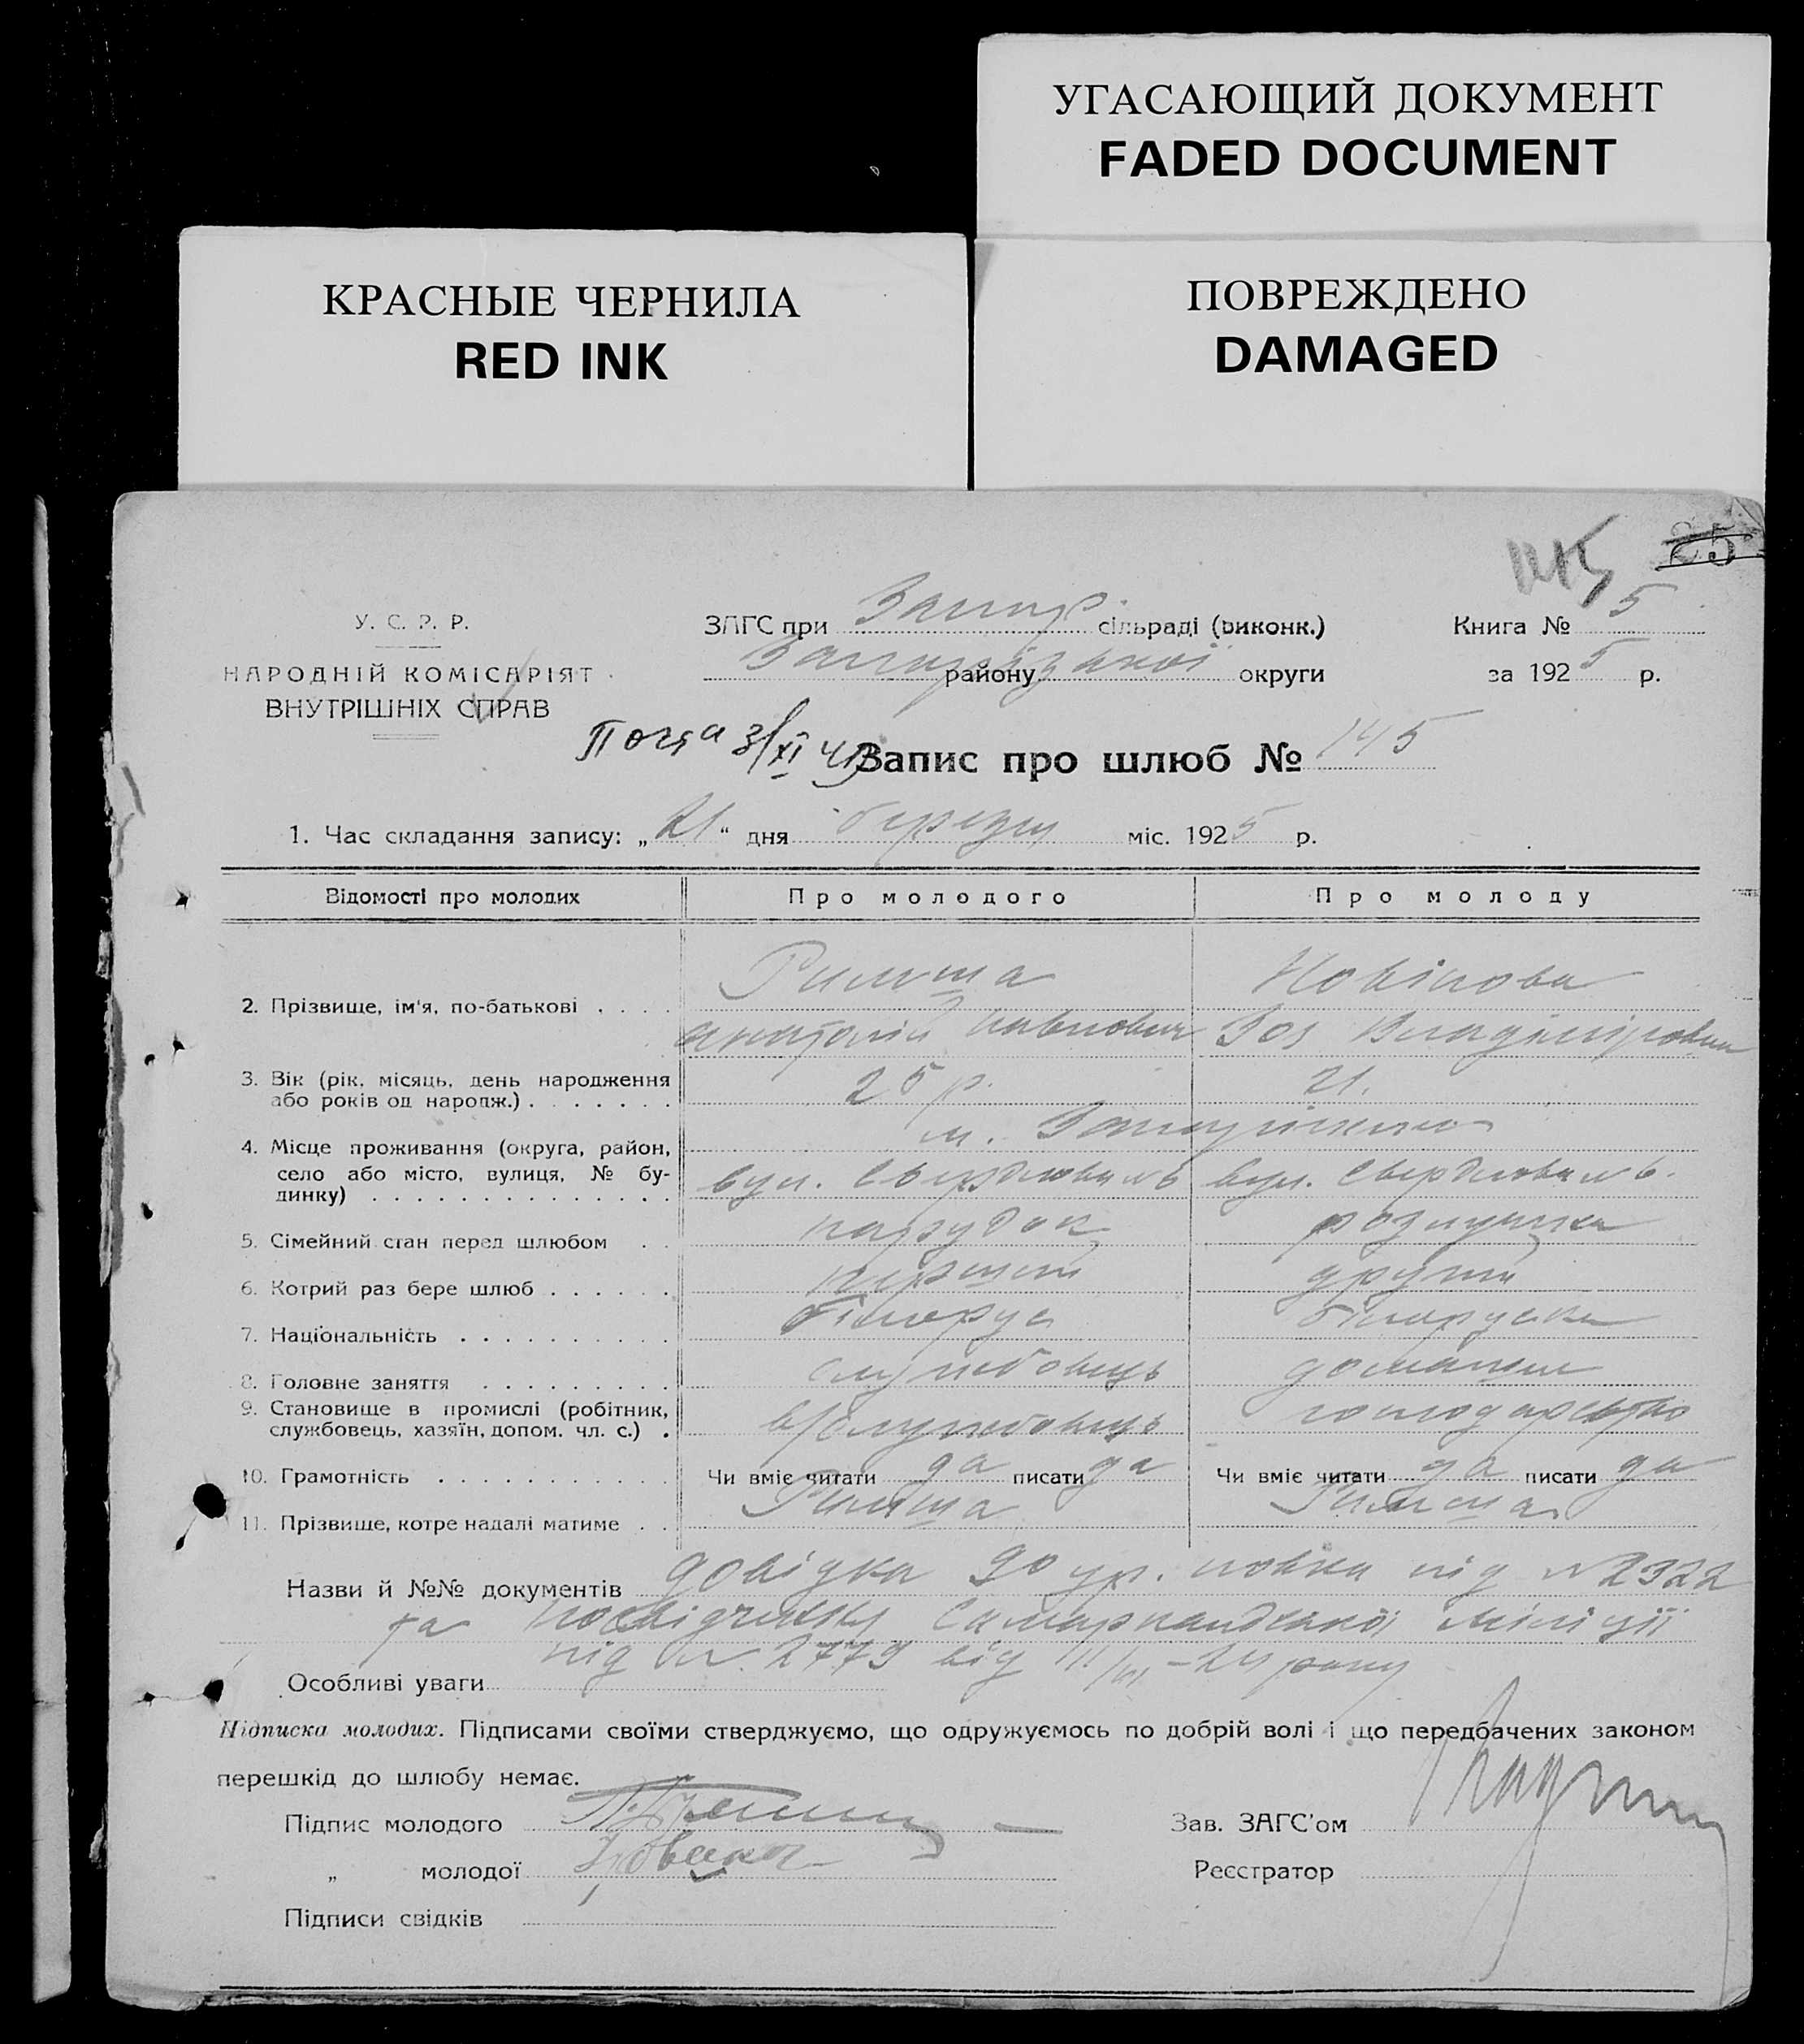 УГАСАЮЩИЙ ДОКУМЕНТ
FADED DOCUMENT
КРАСНЫЕ ЧЕРНИЛА
RED INK
ПОВРЕЖДЕНО
DAMAGED
25
У. С. Р. Р.
НАРОДНІЙ КОМІСАРІЯТ
ВНУТРІШНІХ СПРАВ
ЗАГС при Запор. сільраді (виконк.)
району Запорізької округи
Книга № 5
за 1925 р.
Запис про шлюб № 145
1. Час складання запису: „21“ дня березня міс. 1925 р.
Відомості про молодих Про молодого Про молоду
Римша Новікова
2. Прізвище, ім'я, по-батькові . . . .
анатолій Павлович Зоя Владіміровна
3. Вік (рік, місяць, день народження 25 р. 21.
або років од народж.) . . . . . . .
м. Запоріжжя
4. Місце проживання (округа, район,
село або місто, вулиця, № бу- вул. Свердлова №6 вул. Свердлова №6.
динку) . . . . . . . . . . . . . .
5. Сімейний стан перед шлюбом . . парубок розлучена
6. Котрий раз бере шлюб . . . . . . перший другий
7. Національність . . . . . . . . . . білорус білоруска
8. Головне заняття . . . . . . . . . службовець домашнє
9. Становище в промислі (робітник,
службовець, хазяїн, допом. чл. с.) . службовець господарство
10. Грамотність . . . . . . . . . . . Чи вміє читати да писати да Чи вміє читати да писати да
11. Прізвище, котре надалі матиме . . Римша Римша
Назви й №№ документів довідка 90 полка під №2322
та Самаркандської міліції
під №. 2779 від – 24 року
Особливі уваги
Підписка молодих. Підписами своїми стверджуємо, що одружуємось по добрій волі і що передбачених законом
перешкід до шлюбу немає.
Підпис молодого Зав. ЗАГС'ом
„ молодої Реєстратор
Підписи свідків